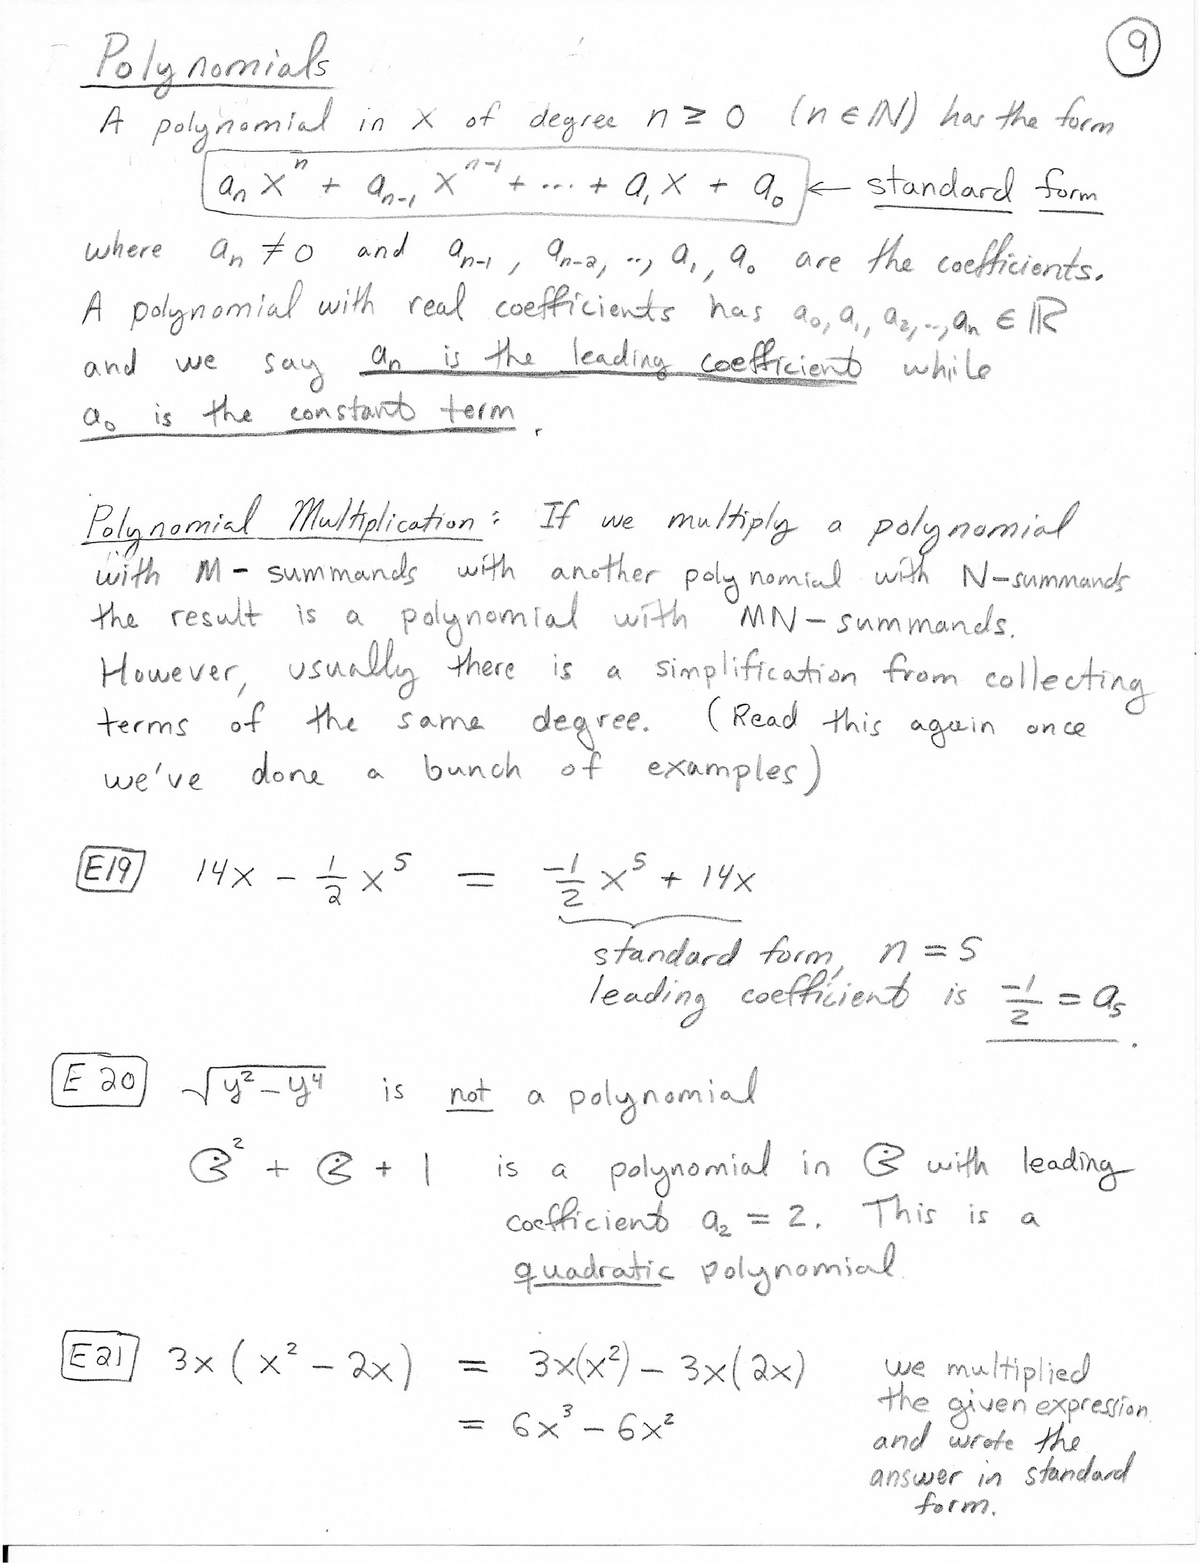 9
Polynomials
A polynomial in x of degree n ≥ 0 (n ∈ ℕ) has the form
aₙxⁿ + aₙ₋₁xⁿ⁻¹ + ... + a₁x + a₀ ← standard form
where aₙ ≠ 0 and aₙ₋₁, aₙ₋₂, .., a₁, a₀ are the coefficients.
A polynomial with real coefficients has a₀, a₁, a₂, .., aₙ ∈ ℝ
and we say aₙ is the leading coefficient while
a₀ is the constant term.
Polynomial Multiplication: If we multiply a polynomial
with M-summands with another polynomial with N-summands
the result is a polynomial with MN-summands.
However, usually there is a simplification from collecting
terms of the same degree. (Read this again once
we've done a bunch of examples)
E19 14x - 1/2 x⁵ = -1/2 x⁵ + 14x
standard form, n = 5
leading coefficient is -1/2 = a₅.
E20 √(y²-y⁴) is not a polynomial
² + + 1 is a polynomial in with leading
coefficient a₂ = 2. This is a
quadratic polynomial.
E21 3x(x² - 2x) = 3x(x²) - 3x(2x) we multiplied
the given expression
= 6x³ - 6x² and wrote the
answer in standard
form.